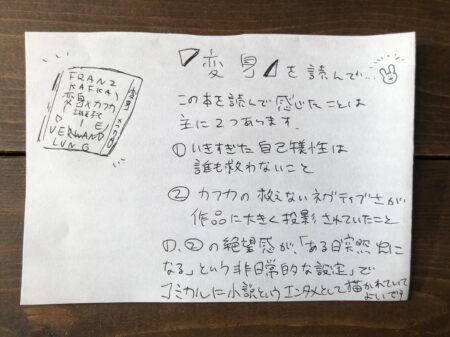 FRANZ
KAFKA
変身 カフカ
DIE
VERWAND
LUNG
変身 カフカ
『変身』を読んで…
この本を読んで感じたことは
主に2つあります。
①いきすぎた自己犠牲は
誰も救わないこと
②カフカの救えないネガティブさが
作品に大きく投影されていたこと
①、②の絶望感が、「ある日突然虫に
なる」という非日常的な設定」で
コミカルに小説というエンタメとして描かれていて
よいです